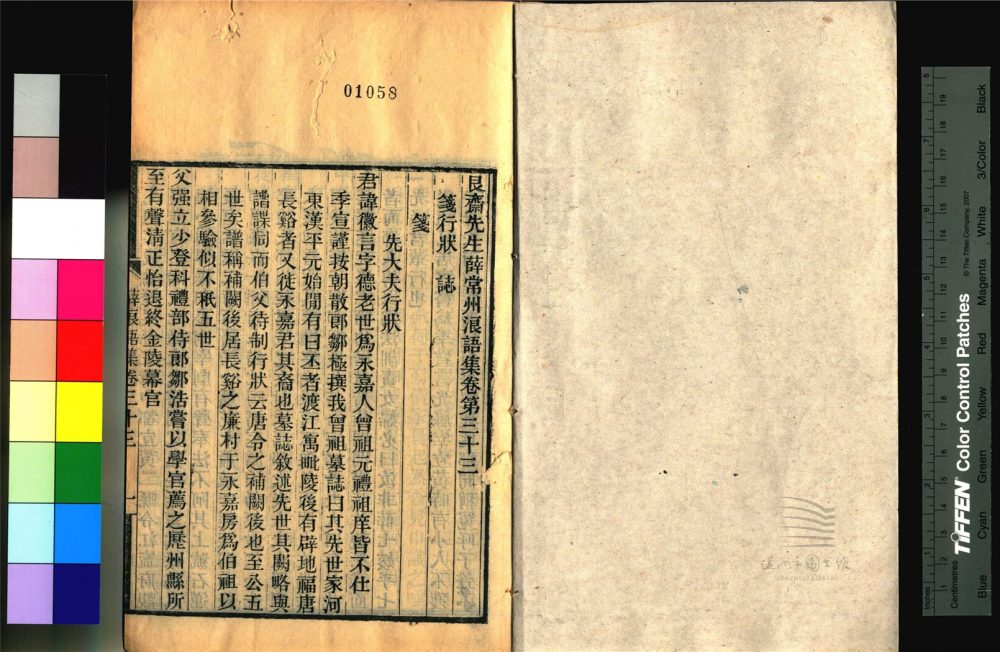 01058
艮齋先生薛常州浪語集卷第三十三
箋行狀 誌
箋
先大夫行狀
君諱徽言字德老世爲永嘉人曾祖元禮祖庠皆不仕
季宣謹按朝散郎鄒極撰我曾祖墓誌曰其先世家河
東漢平元始閒有曰丕者渡江寓毗陵後有辟地福唐
長谿者又徙永嘉君其裔也墓誌敘述先世其闕略與
譜諜同而伯父待制行狀云唐令之補闕後也至公五
世矣譜稱補闕後居長谿之廉村于永嘉房爲伯祖以
相參驗似不秖五世
父强立少登科禮部侍郎鄒浩嘗以學官薦之歷州縣所
至有聲淸正怡退終金陵幕官
浪語集卷三十三
一
溫州市圖書館
WENZHOU LIBRARY
Inches
Centimetres
TIFFEN Color Control Patches
© The Tiffen Company, 2007
Blue
Cyan
Green
Yellow
Red
Magenta
White
3/Color
Black